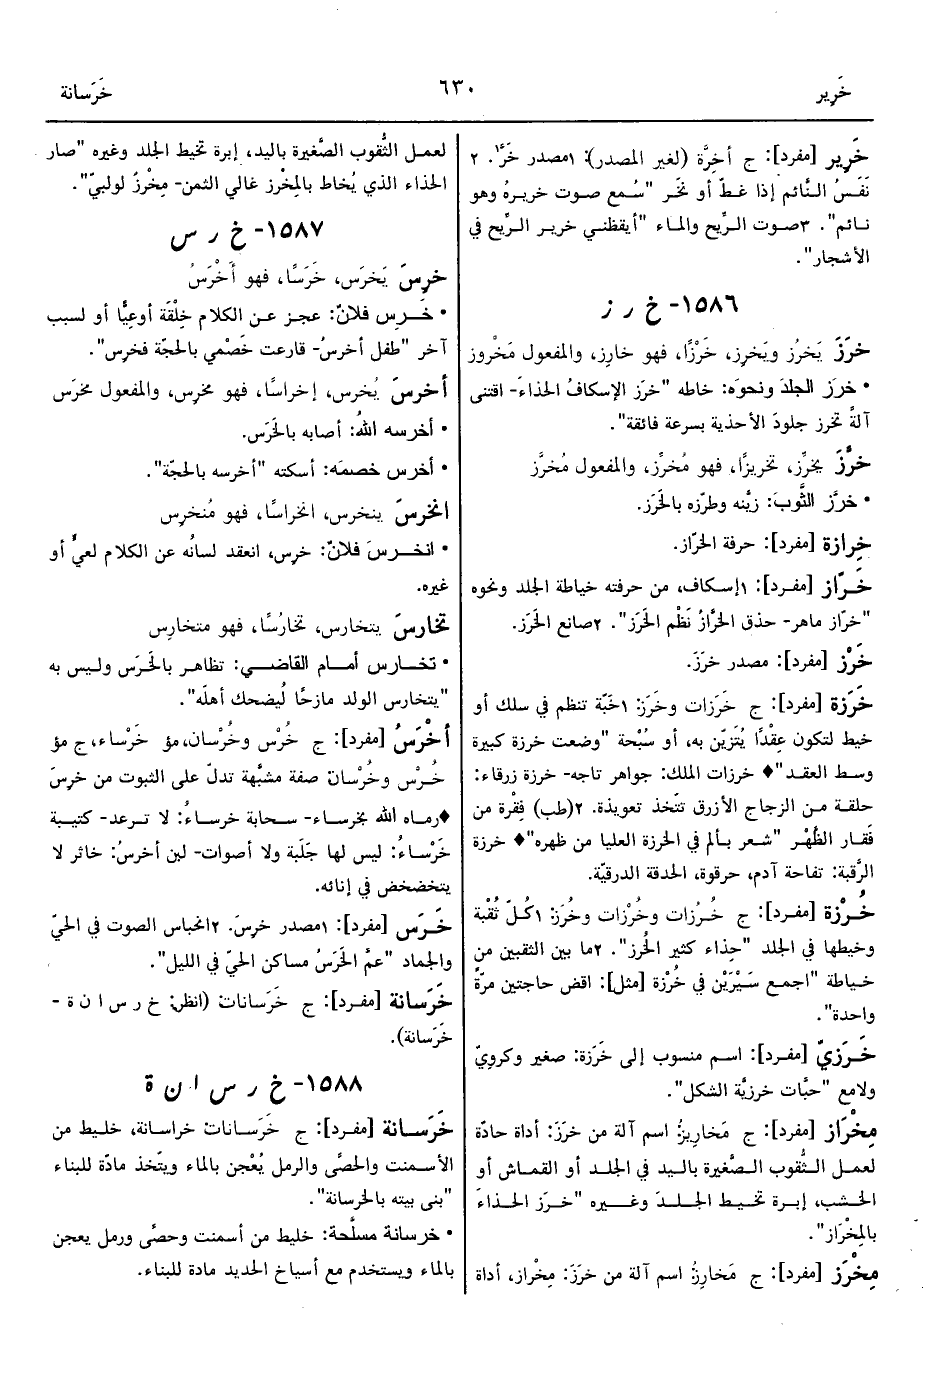 خَرِير
٦٣٠
خَرَسانة
خَرِير [مفرد]: ج أخِرَّة (لغير المصدر): ١مصدر خَرَّ. ٢
نَفَسُ النَّائم إذا غطّ أو نَخَر "سُمع صوت خريرهُ وهو
نائم". ٣صوت الرِّيح والماء "أيقظني خرير الرِّيح في
الأشجار".
١٥٨٦- خ ر ز
خرَزَ يَخرُز ويَخرِز، خَرْزًا، فهو خارِز، والمفعول مَخْروز
• خرَز الجلدَ ونحوَه: خاطه "خرَز الإسكافُ الحذاءَ- اقتنى
آلةً تخرز جلودَ الأحذية بسرعة فائقة".
خرَّزَ يخرِّز، تخريزًا، فهو مُخرِّز، والمفعول مُخرَّز
• خرَّز الثَّوبَ: زيَّنه وطرّزه بالخَرَز.
خِرازة [مفرد]: حرفة الخرّاز.
خَرّاز [مفرد]: ١إسكاف، من حرفته خياطة الجلد ونحوه
"خرّاز ماهر- حذق الخرَّازُ نَظْم الخَرَز". ٢صانع الخَرَز.
خَرْز [مفرد]: مصدر خرَزَ.
خَرَزة [مفرد]: ج خَرَزات وخَرَز: ١حَبّة تنظم في سلك أو
خيط لتكون عِقْدًا يُتَزيّن به، أو سُبْحة "وضعت خرزة كبيرة
وسط العقد" ♦ خرزات الملك: جواهر تاجه- خرزة زرقاء:
حلقة من الزجاج الأزرق تتّخذ تعويذة. ٢(طب) فِقْرة من
فَقار الظَّهْر "شعر بألم في الخرزة العليا من ظهره" ♦ خرزة
الرَّقبة: تفاحة آدم، حرقوة، الحدقة الدرقيّة.
خُرْزة [مفرد]: ج خُرُزات وخُرْزات وخُرَز: ١كُلّ ثُقْبة
وخيطها في الجلد "حِذاء كثير الخُرز". ٢ما بين الثقبين من
خياطة "اجمع سَيْرَيْن في خُرْزة [مثل]: اقض حاجتين مرّةً
واحدة".
خَرَزيّ [مفرد]: اسم منسوب إلى خَرَزة: صغير وكرويّ
ولامع "حبَّات خرزيَّة الشكل".
مِخْراز [مفرد]: ج مَخاريزُ: اسم آلة من خرَزَ: أداة حادّة
لعمل الثُّقوب الصَّغيرة باليد في الجلد أو القماش أو
الخشب، إبرة تخيط الجلدَ وغيره "خرَز الحذاءَ
بالمِخْراز".
مِخْرَز [مفرد]: ج مَخارِزُ: اسم آلة من خرَزَ: مِخْراز، أداة
لعمل الثُّقوب الصَّغيرة باليد، إبرة تخيط الجلد وغيره "صار
الحذاء الذي يُخاط بالمِخْرز غالي الثمن- مِخْرزٌ لولبيّ".
١٥٨٧- خ ر س
خرِسَ يَخرَس، خَرَسًا، فهو أَخْرَسُ
• خَرِس فلانٌ: عجز عن الكلام خِلْقَة أوعِيًّا أو لسبب
آخر "طفل أخرسُ- قارعت خَصْمي بالحجّة فخرِس".
أخرسَ يُخرس، إخراسًا، فهو مخرِس، والمفعول مخرَس
• أخرسه اللهُ: أصابه بالخَرَس.
• أخرس خصمَه: أسكته "أخرسه بالحجّة".
انخرسَ ينخرس، انخراسًا، فهو مُنخرِس
• انخرسَ فلانٌ: خرِس، انعقد لسانُه عن الكلام لعيٍّ أو
غيره.
تخارسَ يتخارس، تخارُسًا، فهو متخارِس
• تخارس أمام القاضي: تظاهر بالخَرَس وليس به
"يتخارس الولد مازحًا لُيضحك أهلَه".
أخْرَسُ [مفرد]: ج خُرْس وخُرْسان، مؤ خَرْساء، ج مؤ
خُرْس وخُرْسان صفة مشبَّهة تدلّ على الثبوت من خرِسَ
♦رماه الله بخرساء- سحابة خرساءُ: لا ترعد- كتيبة
خَرْساءُ: ليس لها جَلَبة ولا أصوات- لبن أخرسُ: خاثر لا
يتخضخض في إنائه.
خَرَس [مفرد]: ١مصدر خرِسَ. ٢انحباس الصوت في الحيّ
والجماد "عمَّ الخَرَسُ مساكن الحيّ في الليل".
خَرَسانة [مفرد]: ج خَرَسَانات (انظر: خ ر س ا ن ة -
خَرَسانة).
١٥٨٨- خ ر س ا ن ة
خَرَسانة [مفرد]: ج خَرَسانات خراسانة، خليط من
الأسمنت والحصَّى والرمل يُعْجن بالماء ويتّخذ مادّة للبناء
"بنى بيته بالخرسانة".
• خرسانة مسلَّحة: خليط من أسمنت وحصًى ورمل يعجن
بالماء ويستخدم مع أسياخ الحديد مادة للبناء.